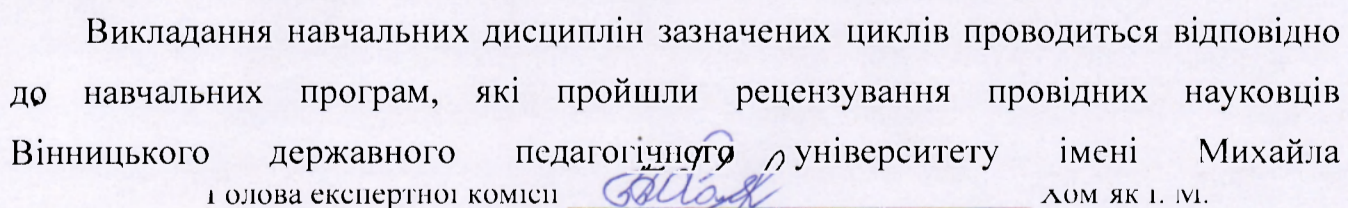 Викладання навчальних дисциплін зазначених циклів проводиться відповідно
до навчальних програм, які пройшли рецензування провідних науковців
Вінницького державного педагогічного університету імені Михайла
Голова експертної комісії Хом'як І. М.